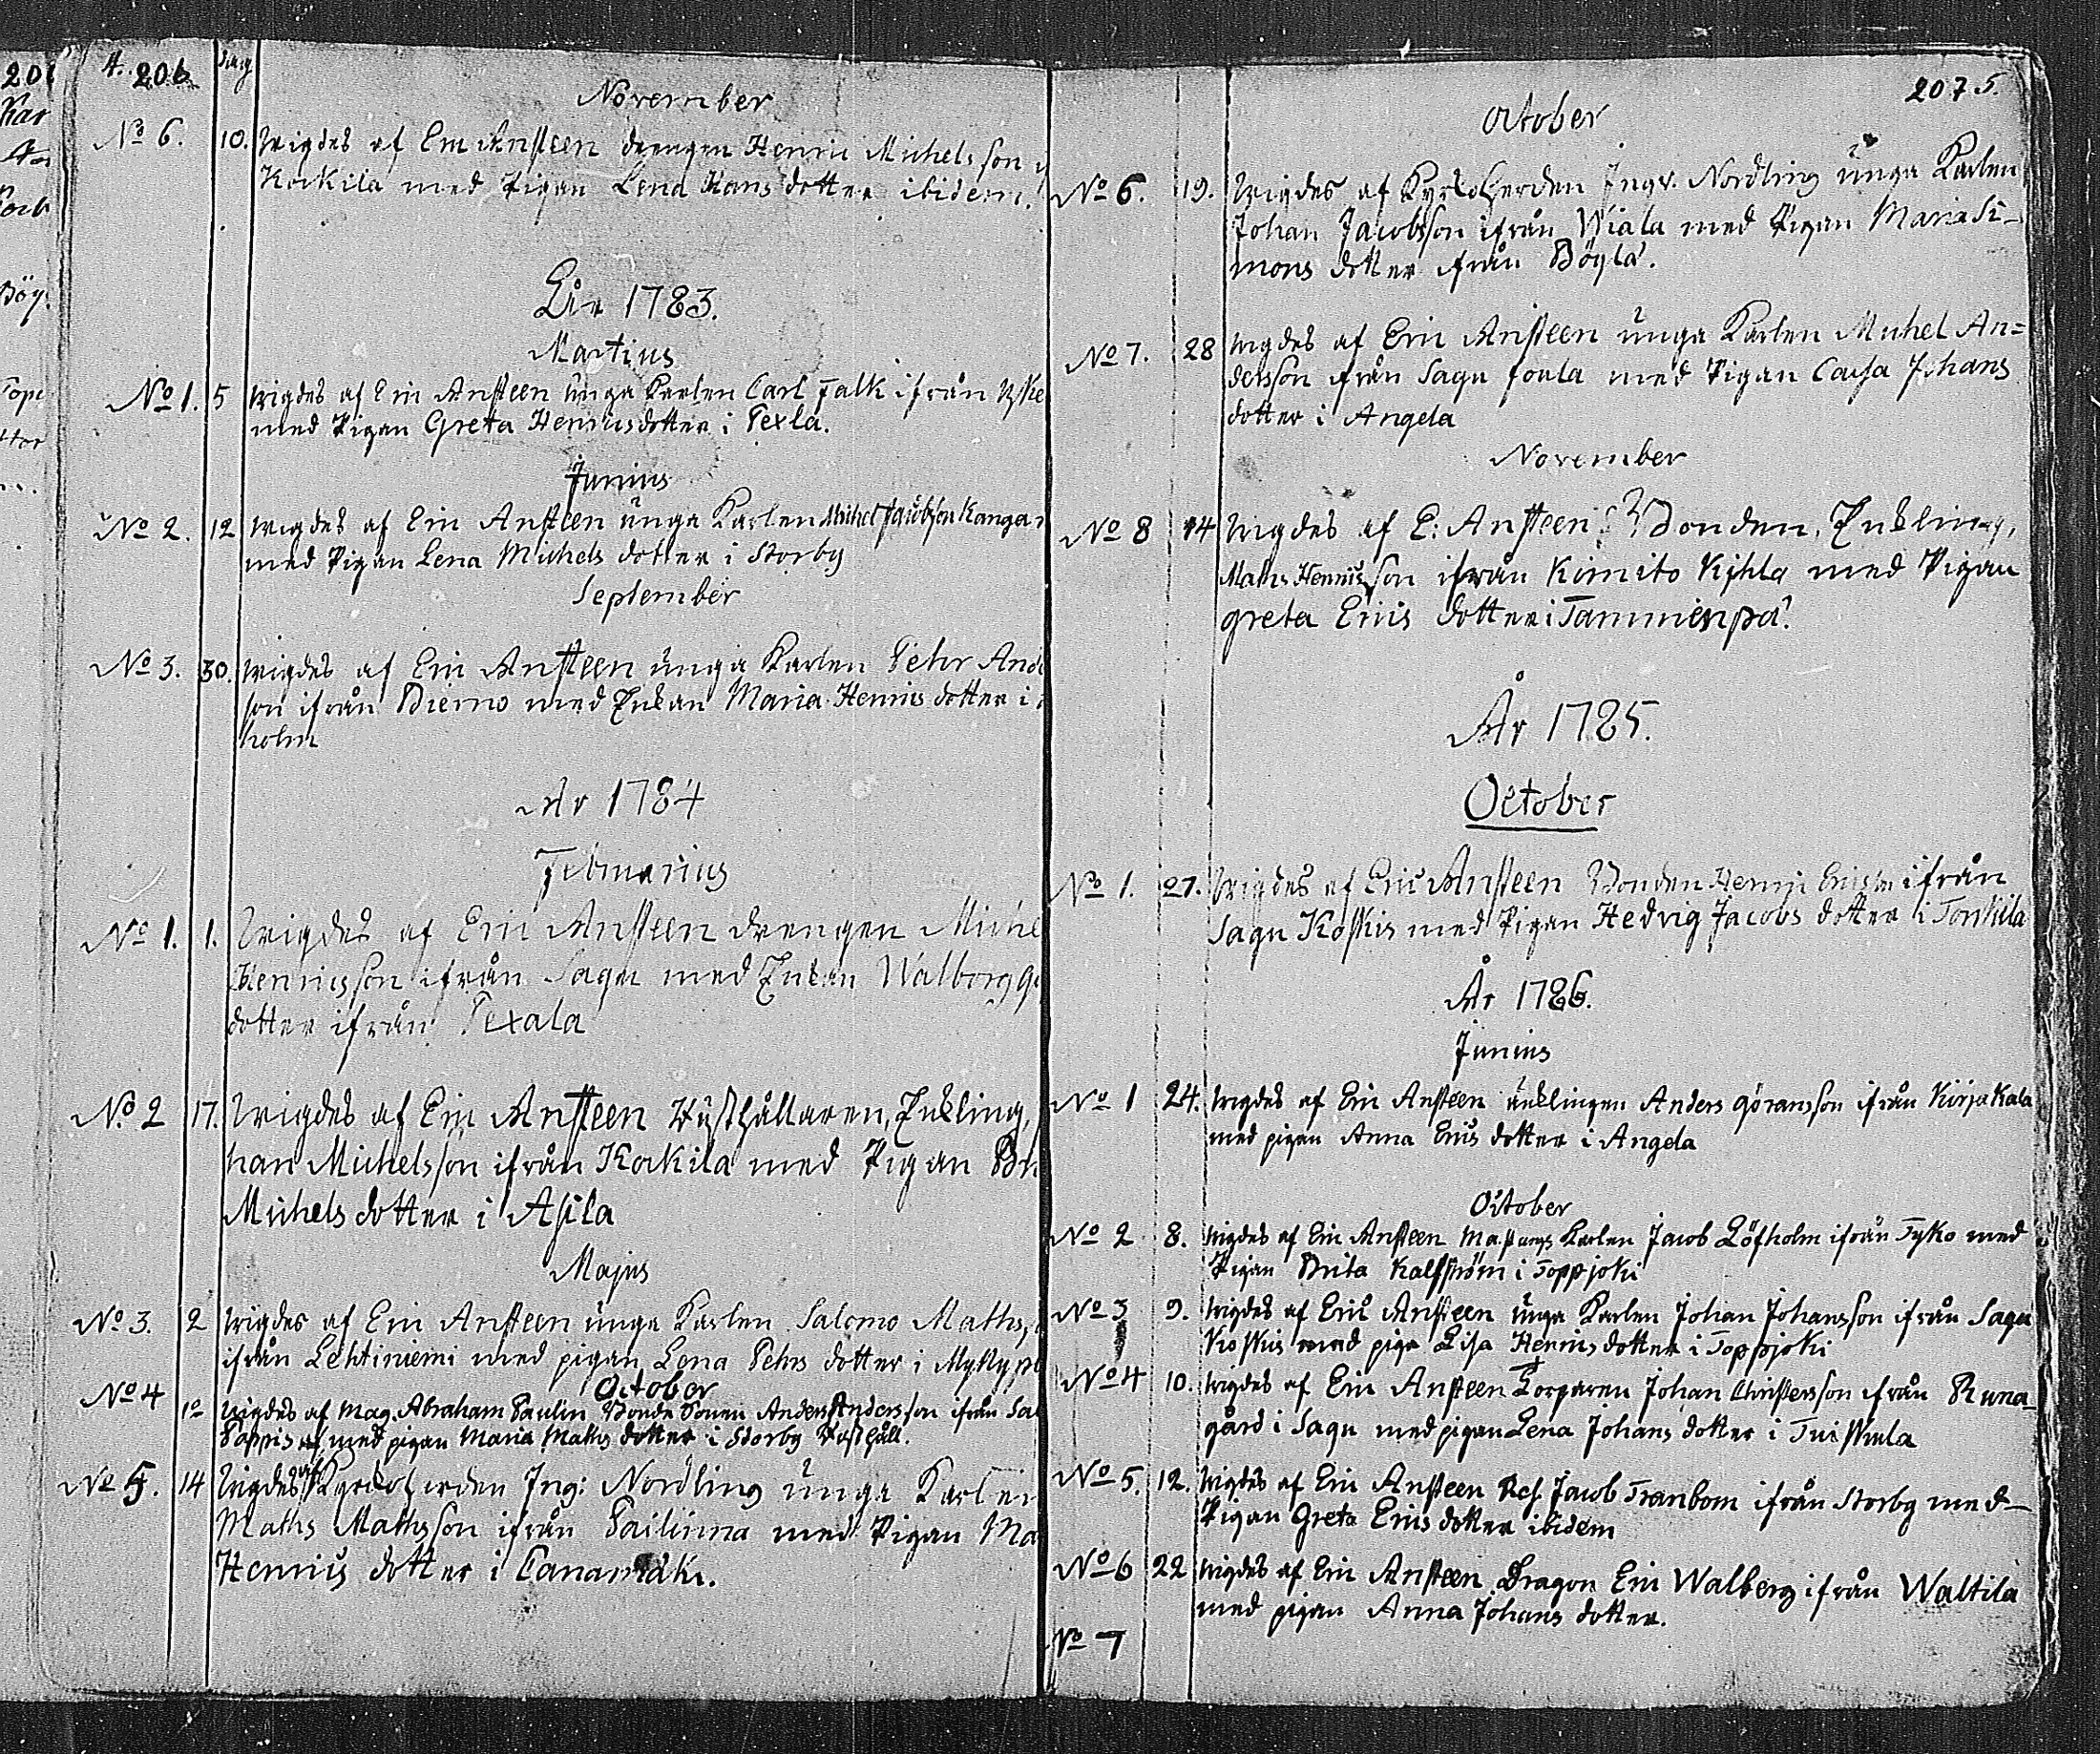 4. 206 Dag
November
No 6. 10. Wigdes af Eric Ansteen drengen Henric Michelsson
Kockila med Pigan Lena Hans dotter ibidem.
År 1783.
Martius
No 1. 5 Wigdes af Eric Ansteen unga Karlen Carl Falk ifrån
med Pigan Greta Henricsdotter i Pexla.
Junius
No 2. 12 Wigdes af Eric Ansteen unga Karlen Michel Jacobsson
med Pigan Lena Michels dotter i Storby
September
No 3. 30. Wigdes af Eric Ansteen unga Karlen Pehr
son ifrån Bierno med Enkan Maria Henrics dotter i
holm
År 1784
Februarius
No 1. 1. Wigdes af Eric Ansteen drengen
Henricsson ifrån Sagu med Enkan Walborg
dotter ifrån Pexala
No 2 17. Wigdes af Eric Ansteen Rusthållaren, Enkling,
han Michelsson ifrån Kockila med Pigan
Michels dotter i Asila
Majus
No 3. 2 Wigdes af Eric Ansteen unga Karlen Salomo
ifrån Lehtiniemi med pigan Lena Pehrs dotter i
October
No 4 10 Wigdes af Mag. Abraham Paulin Bonde Sonen Anders Andersson ifrån
Pappis med pigan Maria Maths dotter i Storby Rusthåll.
No 5. 14 Wigdes af Kyrkoherden Ing: Nordling unga Karlen
Maths Mathsson ifrån Pailinna med Pigan
Henrics dotter i
207 5.
October
No 6. 19. Wigdes af Kyrkoherden Ingv. Nordling unga Karlen
Johan Jacobsson ifrån Wiala med Pigan Maria Si-
mons dotter ifrån Böylä.
No 7. 28 Wigdes af Eric Ansteen unga Karlen Michel An=
dersson ifrån Sagu med Pigan Caisa Johans
dotter i Angela
November
No 8 14 Wigdes af E: Ansteen Bonden, Enkling,
Maths Henricsson ifrån Kimito Kihla med Pigan
Greta Erics dotter i Tammenpä.
År 1785.
October
No 1. 27. Wigdes af Eric Ansteen Bonden Henric Ericsson ifrån
Sagu Koskis med Pigan Hedvig Jacobs dotter i Torkila
År 1786.
Junius
No 1 24. Wigdes af Eric Ansteen änklingen Anders Göransson ifrån Kirjakala
med pigan Anna Erics dotter i Angela
October
No 2 8. Wigdes af Eric Ansteen Masungs Karlen Jacob Löfholm ifrån Tyko med
Pigan Brita Kalfström i Toppjoki
No 3 9. Wigdes af Eric Ansteen unga Karlen Johan Johansson ifrån Sagu
Koskis med piga Lisa Henrics dotter i Toppjoki
No 4 10. Wigdes af Eric Ansteen Torparen Johan Christersson ifrån Runa-
gård i Sagu med pigan Lena Johans dotter i Tuiskula
No 5. 12. Wigdes af Eric Ansteen Jacob Tranbom ifrån Storby med
Pigan Greta Erics dotter ibidem
No 6 22 Wigdes af Eric Ansteen Dragon Eric Walberg ifrån Waltila
med pigan Anna Johans dotter.
No 7